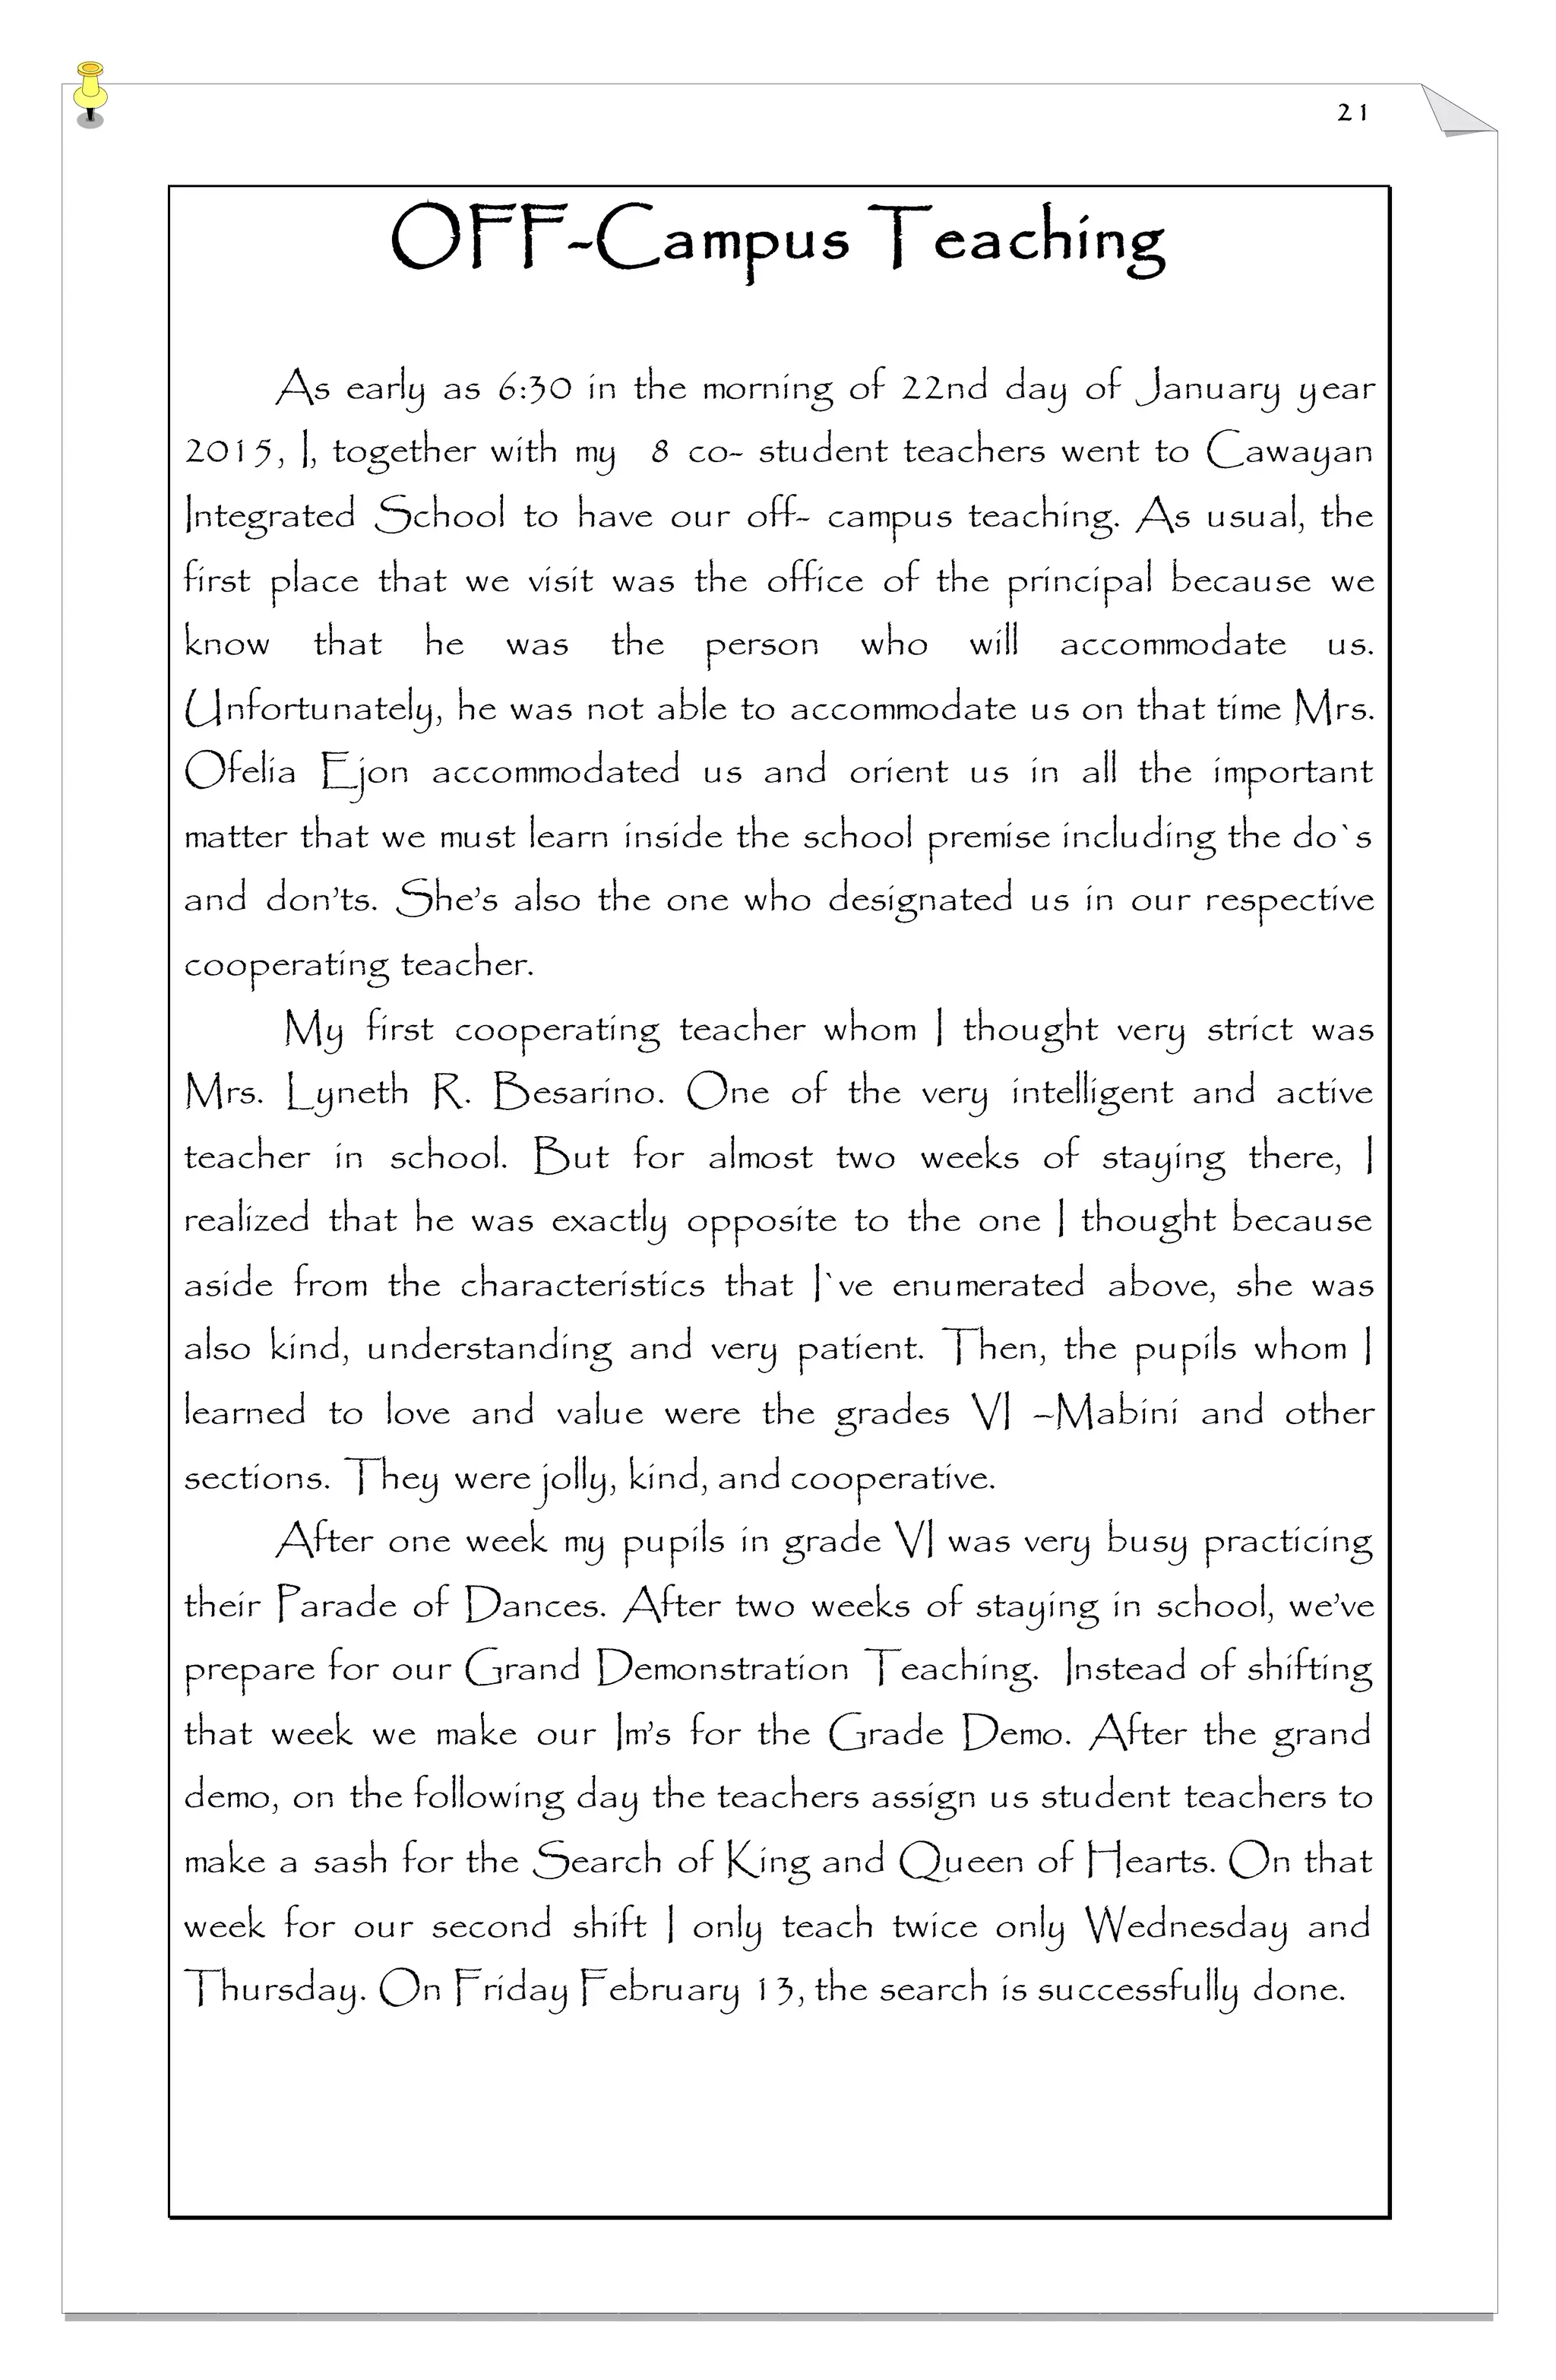 21
OFF-Campus Teaching
As early as 6:30 in the morning of 22nd day of January year
2015, I, together with my 8 co- student teachers went to Cawayan
Integrated School to have our off- campus teaching. As usual, the
first place that we visit was the office of the principal because we
know that he was the person who will accommodate us.
Unfortunately, he was not able to accommodate us on that time Mrs.
Ofelia Ejon accommodated us and orient us in all the important
matter that we must learn inside the school premise including the do`s
and don’ts. She’s also the one who designated us in our respective
cooperating teacher.
My first cooperating teacher whom I thought very strict was
Mrs. Lyneth R. Besarino. One of the very intelligent and active
teacher in school. But for almost two weeks of staying there, I
realized that he was exactly opposite to the one I thought because
aside from the characteristics that I`ve enumerated above, she was
also kind, understanding and very patient. Then, the pupils whom I
learned to love and value were the grades VI –Mabini and other
sections. They were jolly, kind, and cooperative.
After one week my pupils in grade VI was very busy practicing
their Parade of Dances. After two weeks of staying in school, we’ve
prepare for our Grand Demonstration Teaching. Instead of shifting
that week we make our Im’s for the Grade Demo. After the grand
demo, on the following day the teachers assign us student teachers to
make a sash for the Search of King and Queen of Hearts. On that
week for our second shift I only teach twice only Wednesday and
Thursday. On Friday February 13, the search is successfully done.